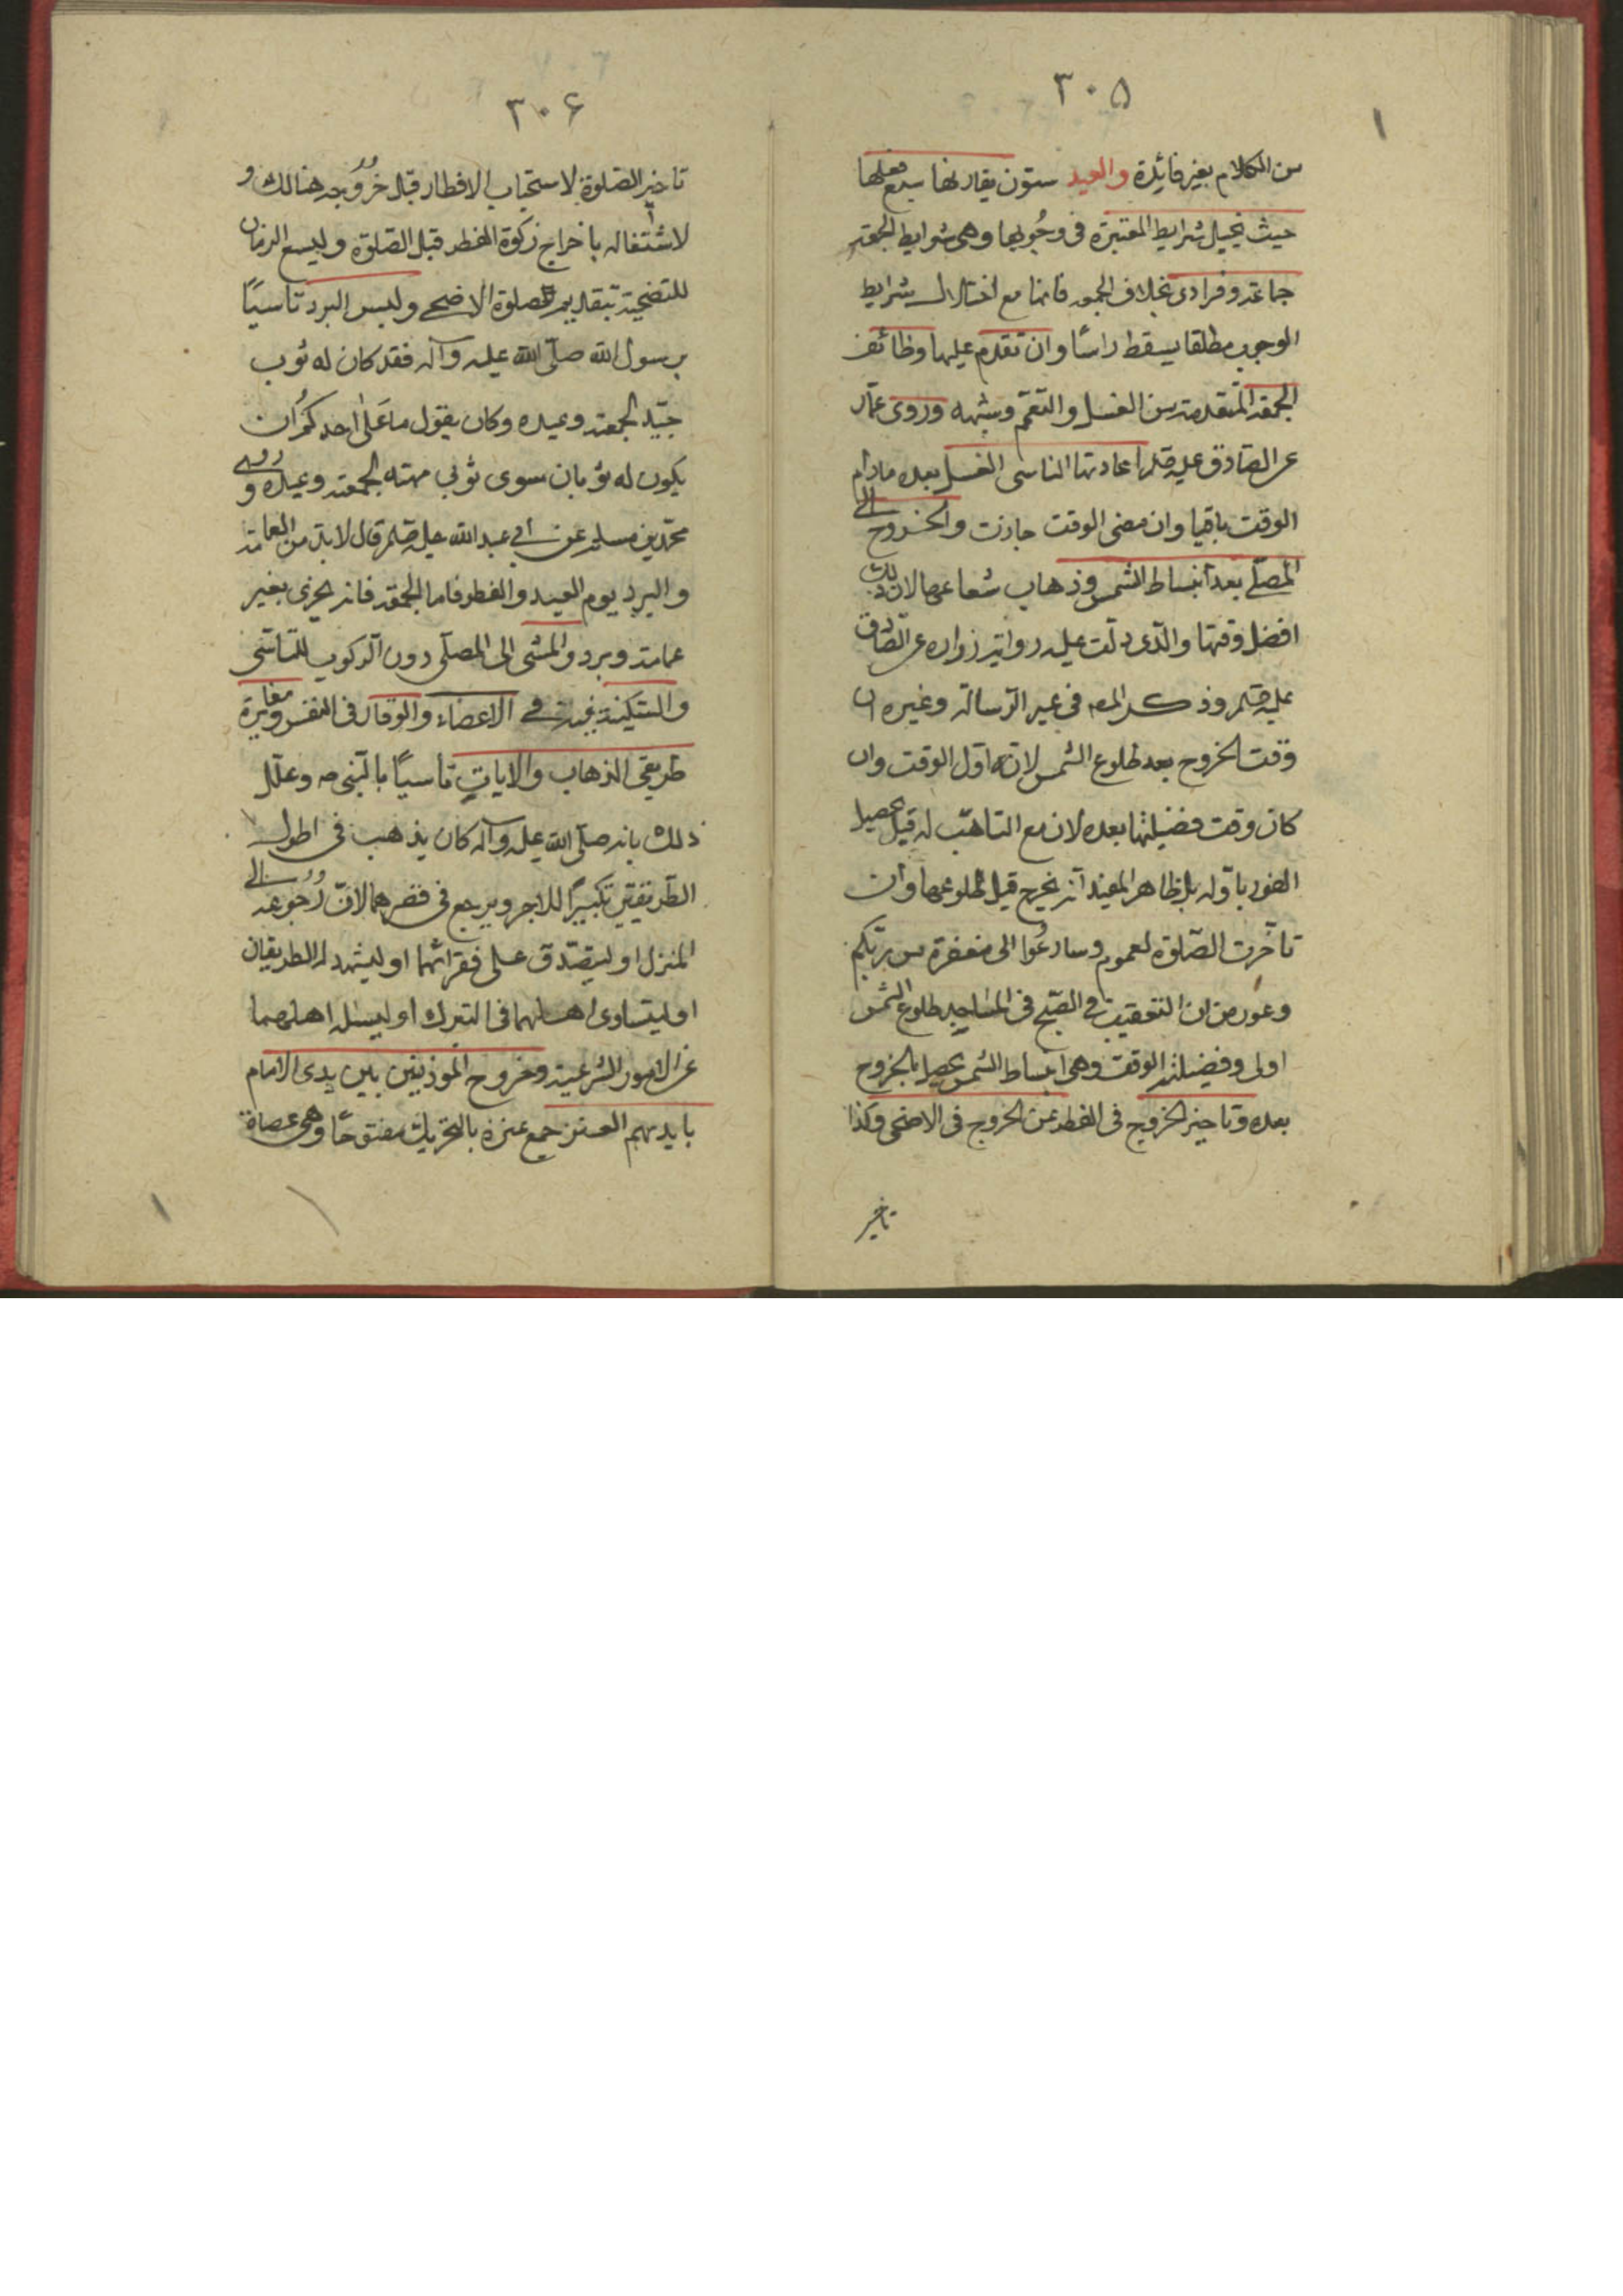 ٣٠٥
من الكلام بغير فائدة والعيد ستون يقارنها سبع فعلها
حيث يختل شرايط المعتبرة في وجوبها وهي شرايط الجمعة
جماعة وفرادى بخلاف الجمعه فانها مع اختلال شرايط
الوجوب مطلقا يسقط راسًا وان تقدم عليها وظائف
الجمعة المتقدمة من الغسل والتعمّم وشبهه وروى عمّار
عن الصادق عليه اعادتها الناسى الغسل بعده مادام
الوقت باقيا وان مضى الوقت جازت والخروج الى
المصلّے بعد انبساط الشمس وذهاب شعاعها لان ذلك
افضل وقتها والذى دلّت عليه رواية زراره عن الصّادق
عليه وذكر المصـ في غير الرسالة وغيره ان
وقت الخروج بعد طلوع الشمس لانه اوّل الوقت وان
كان وقت فضيلتها بعده لان مع التاهّب له قبل يحصل
الفور باوّله بل ظاهر المفيد انه يخرج قبل طلوعها وان
تاخّرت الصّلوة لعموم وسارعُوا الى مغفرة من ربّكم
وعورض ان التعقيب في الصّبح في المساجد طلوع الشمس
اولى وفضيلة الوقت وهى انبساط الشمس يحصل بالخروج
بعده وتاخير الخروج في الفطر عن الخروج في الاضحى وكذا
تاخير
٣٠۶
تاخير الصّلوة لاستحباب الافطار قبل خُرُوجه هنالك و
لاشتغاله باخراج زكوة الفطر قبل الصّلوة وليسع الزمان
للتضحية بتقديم صلوة الاضحى ولبس البرد تاسيًا
برسول الله صلّى الله عليه وآله فقد كان له ثوب
جيّد لجمعته وعيده وكان يقول ما على احدكم ان
يكون له ثوبان سوى ثوبي مهنته لجمعته وعيده وروى
محمّد بن مسلم عن ابي عبد الله عليه قال لابد من العمامة
والبرد يوم العيد والفطر فاما الجمعة فانه يجزى بغير
عمامة وبرد والمشي الى المصلّى دون الركوب للتاسّى
والسّكينة في الاعضاء والوقار في النفس ومغايرة
طريقى الذهاب والاياب تاسيًا بالنّبى ص وعلّل
ذلك بانه صلّى الله عليه وآله كان يذهب في اطول
الطّريقين تكبيرًا للاجر ويرجع في قصرهما لانّ رُجوعه الى
المنزل او ليتصّدق على فقرائهما او ليشهد له الطريقان
او ليتساوى اهلهما في التبرك او ليسئله اهلهما
عن الامور الشرعية وخروج الموذنين بين يدى الامام
بايديهم العنز جمع عنزة بالتحريك مفتوحًا وهى عصاة